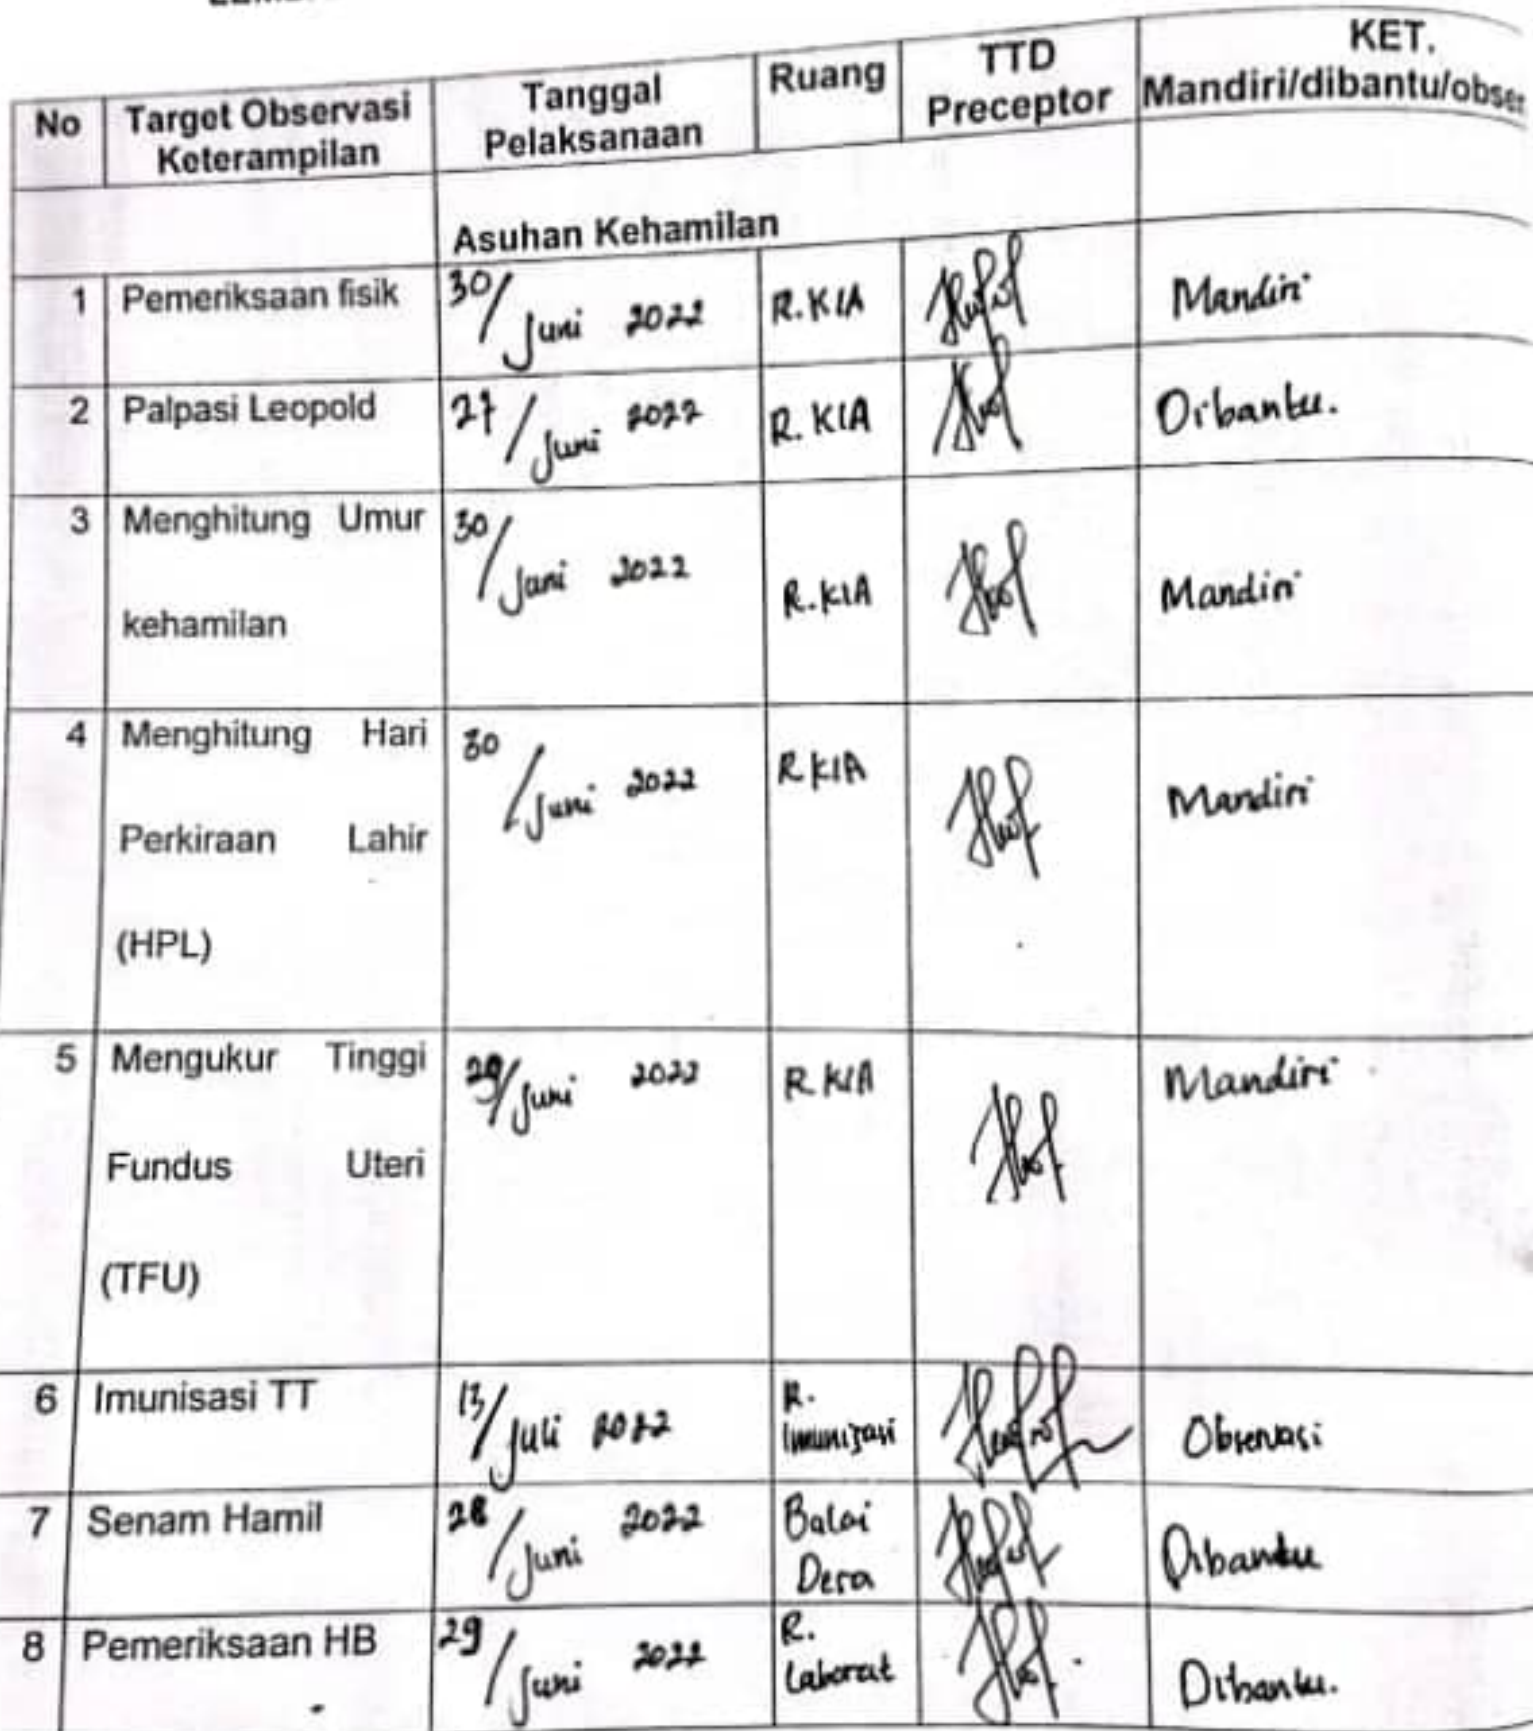 No Target Observasi Keterampilan Tanggal Pelaksanaan Ruang TTD Preceptor KET. Mandiri/dibantu/obser
Asuhan Kehamilan
1 Pemeriksaan fisik 30/Juni 2022 R.KIA Mandiri
2 Palpasi Leopold 27/Juni 2022 R.KIA Dibantu.
3 Menghitung Umur kehamilan 30/Juni 2022 R.KIA Mandiri
4 Menghitung Hari Perkiraan Lahir (HPL) 30/Juni 2022 R KIA Mandiri
5 Mengukur Tinggi Fundus Uteri (TFU) /Juni 2022 R KIA Mandiri
6 Imunisasi TT 13/Juli 2022 R. Imunizasi Observasi
7 Senam Hamil 28/Juni 2022 Balai Desa Dibantu
8 Pemeriksaan HB 29/Juni 2022 R. Laborat Dibantu.